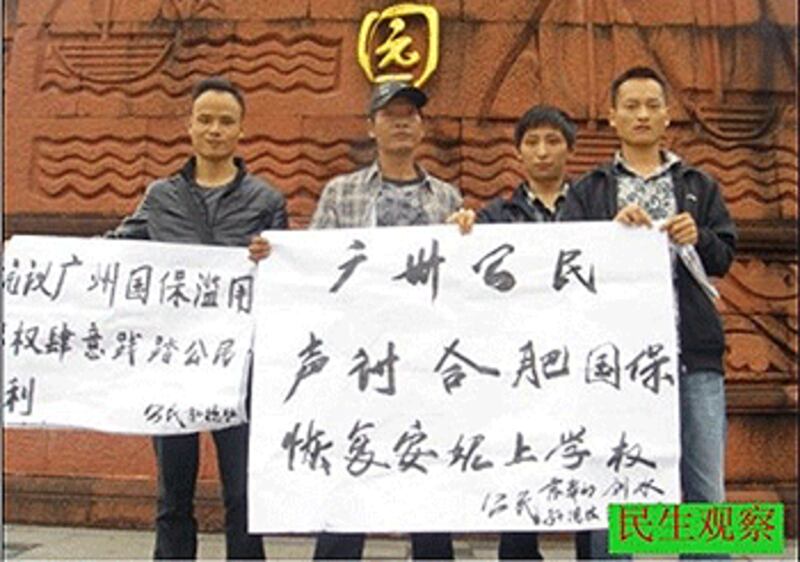 园
议广州国保滥用
权肆意践踏公民
利
公民
广州公民
声讨合肥国保
恢复安妮上学权
公民
民生观察